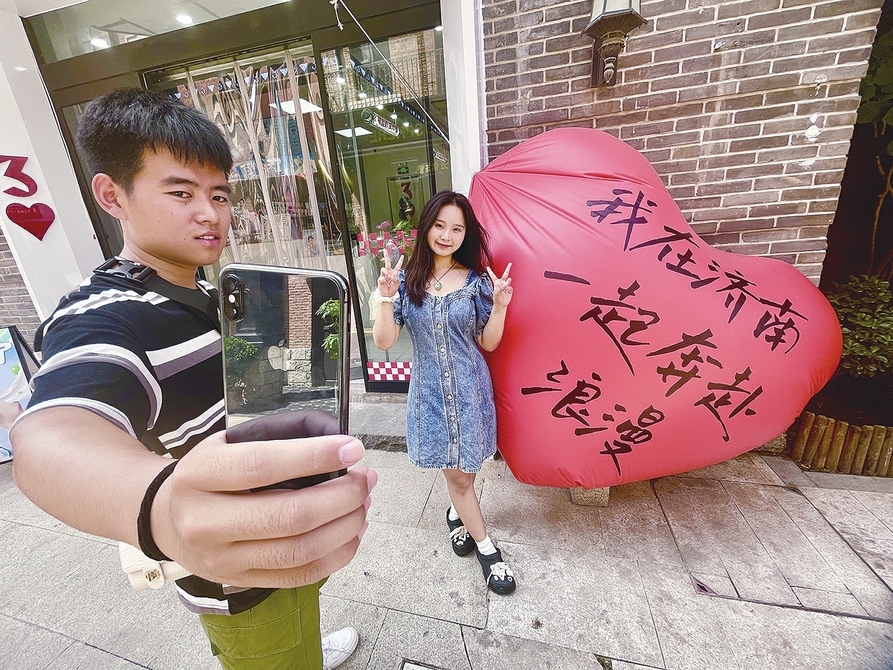 我在济南
一起奔赴
浪漫
3
3